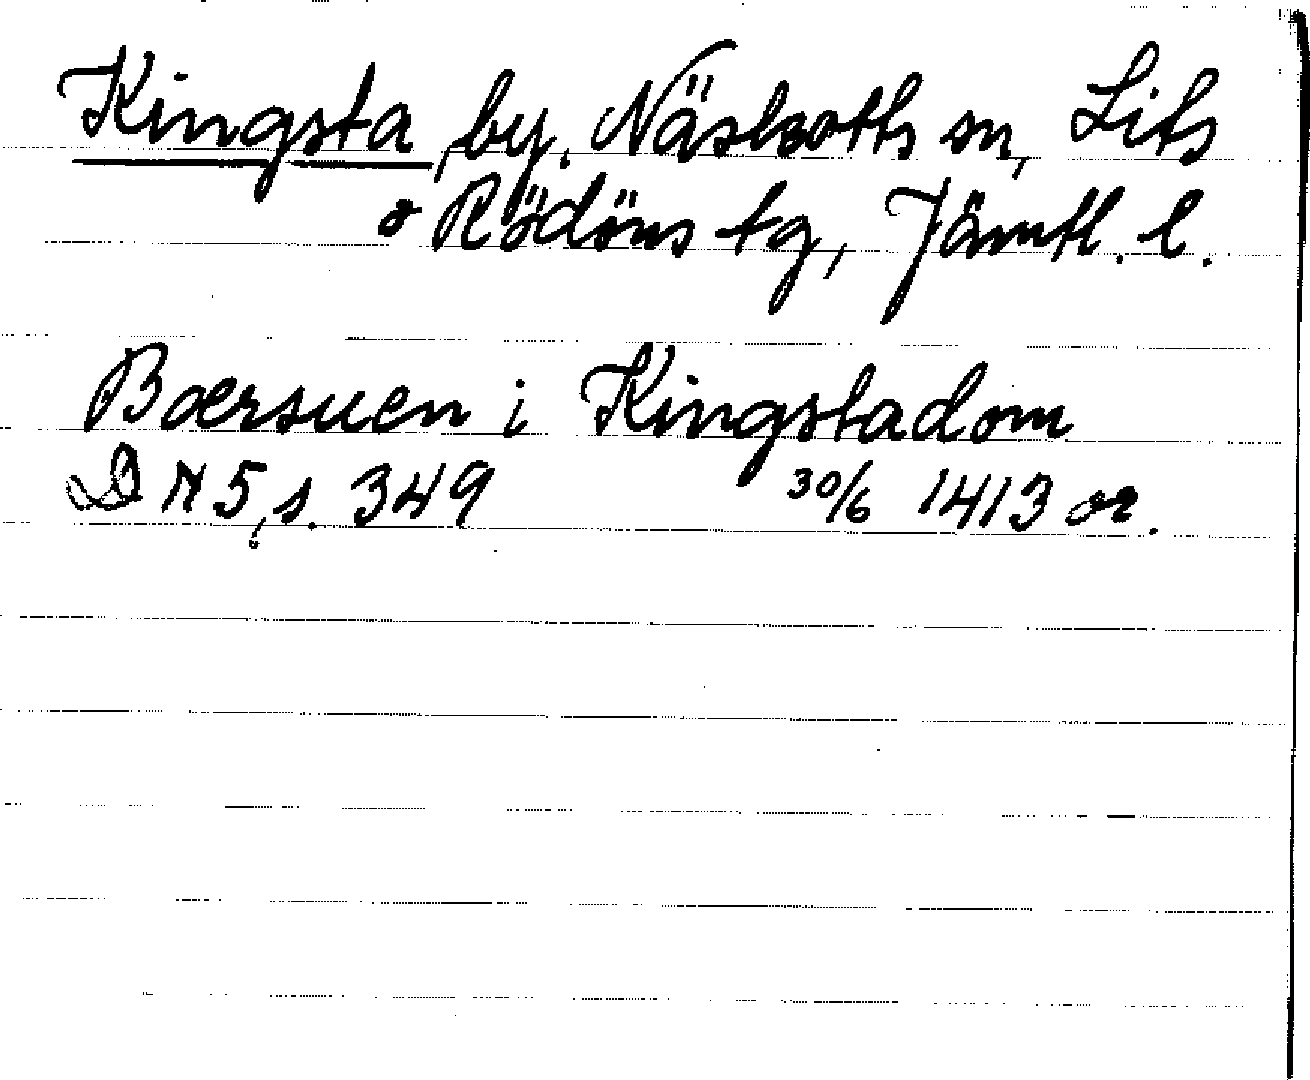 Kingsta, by, Näskotts sn, Lits
o Rödöns tg, Jämtl. l.
Bærsuen i Kingstadom
DN 5, s. 349 30/6 1413 or.